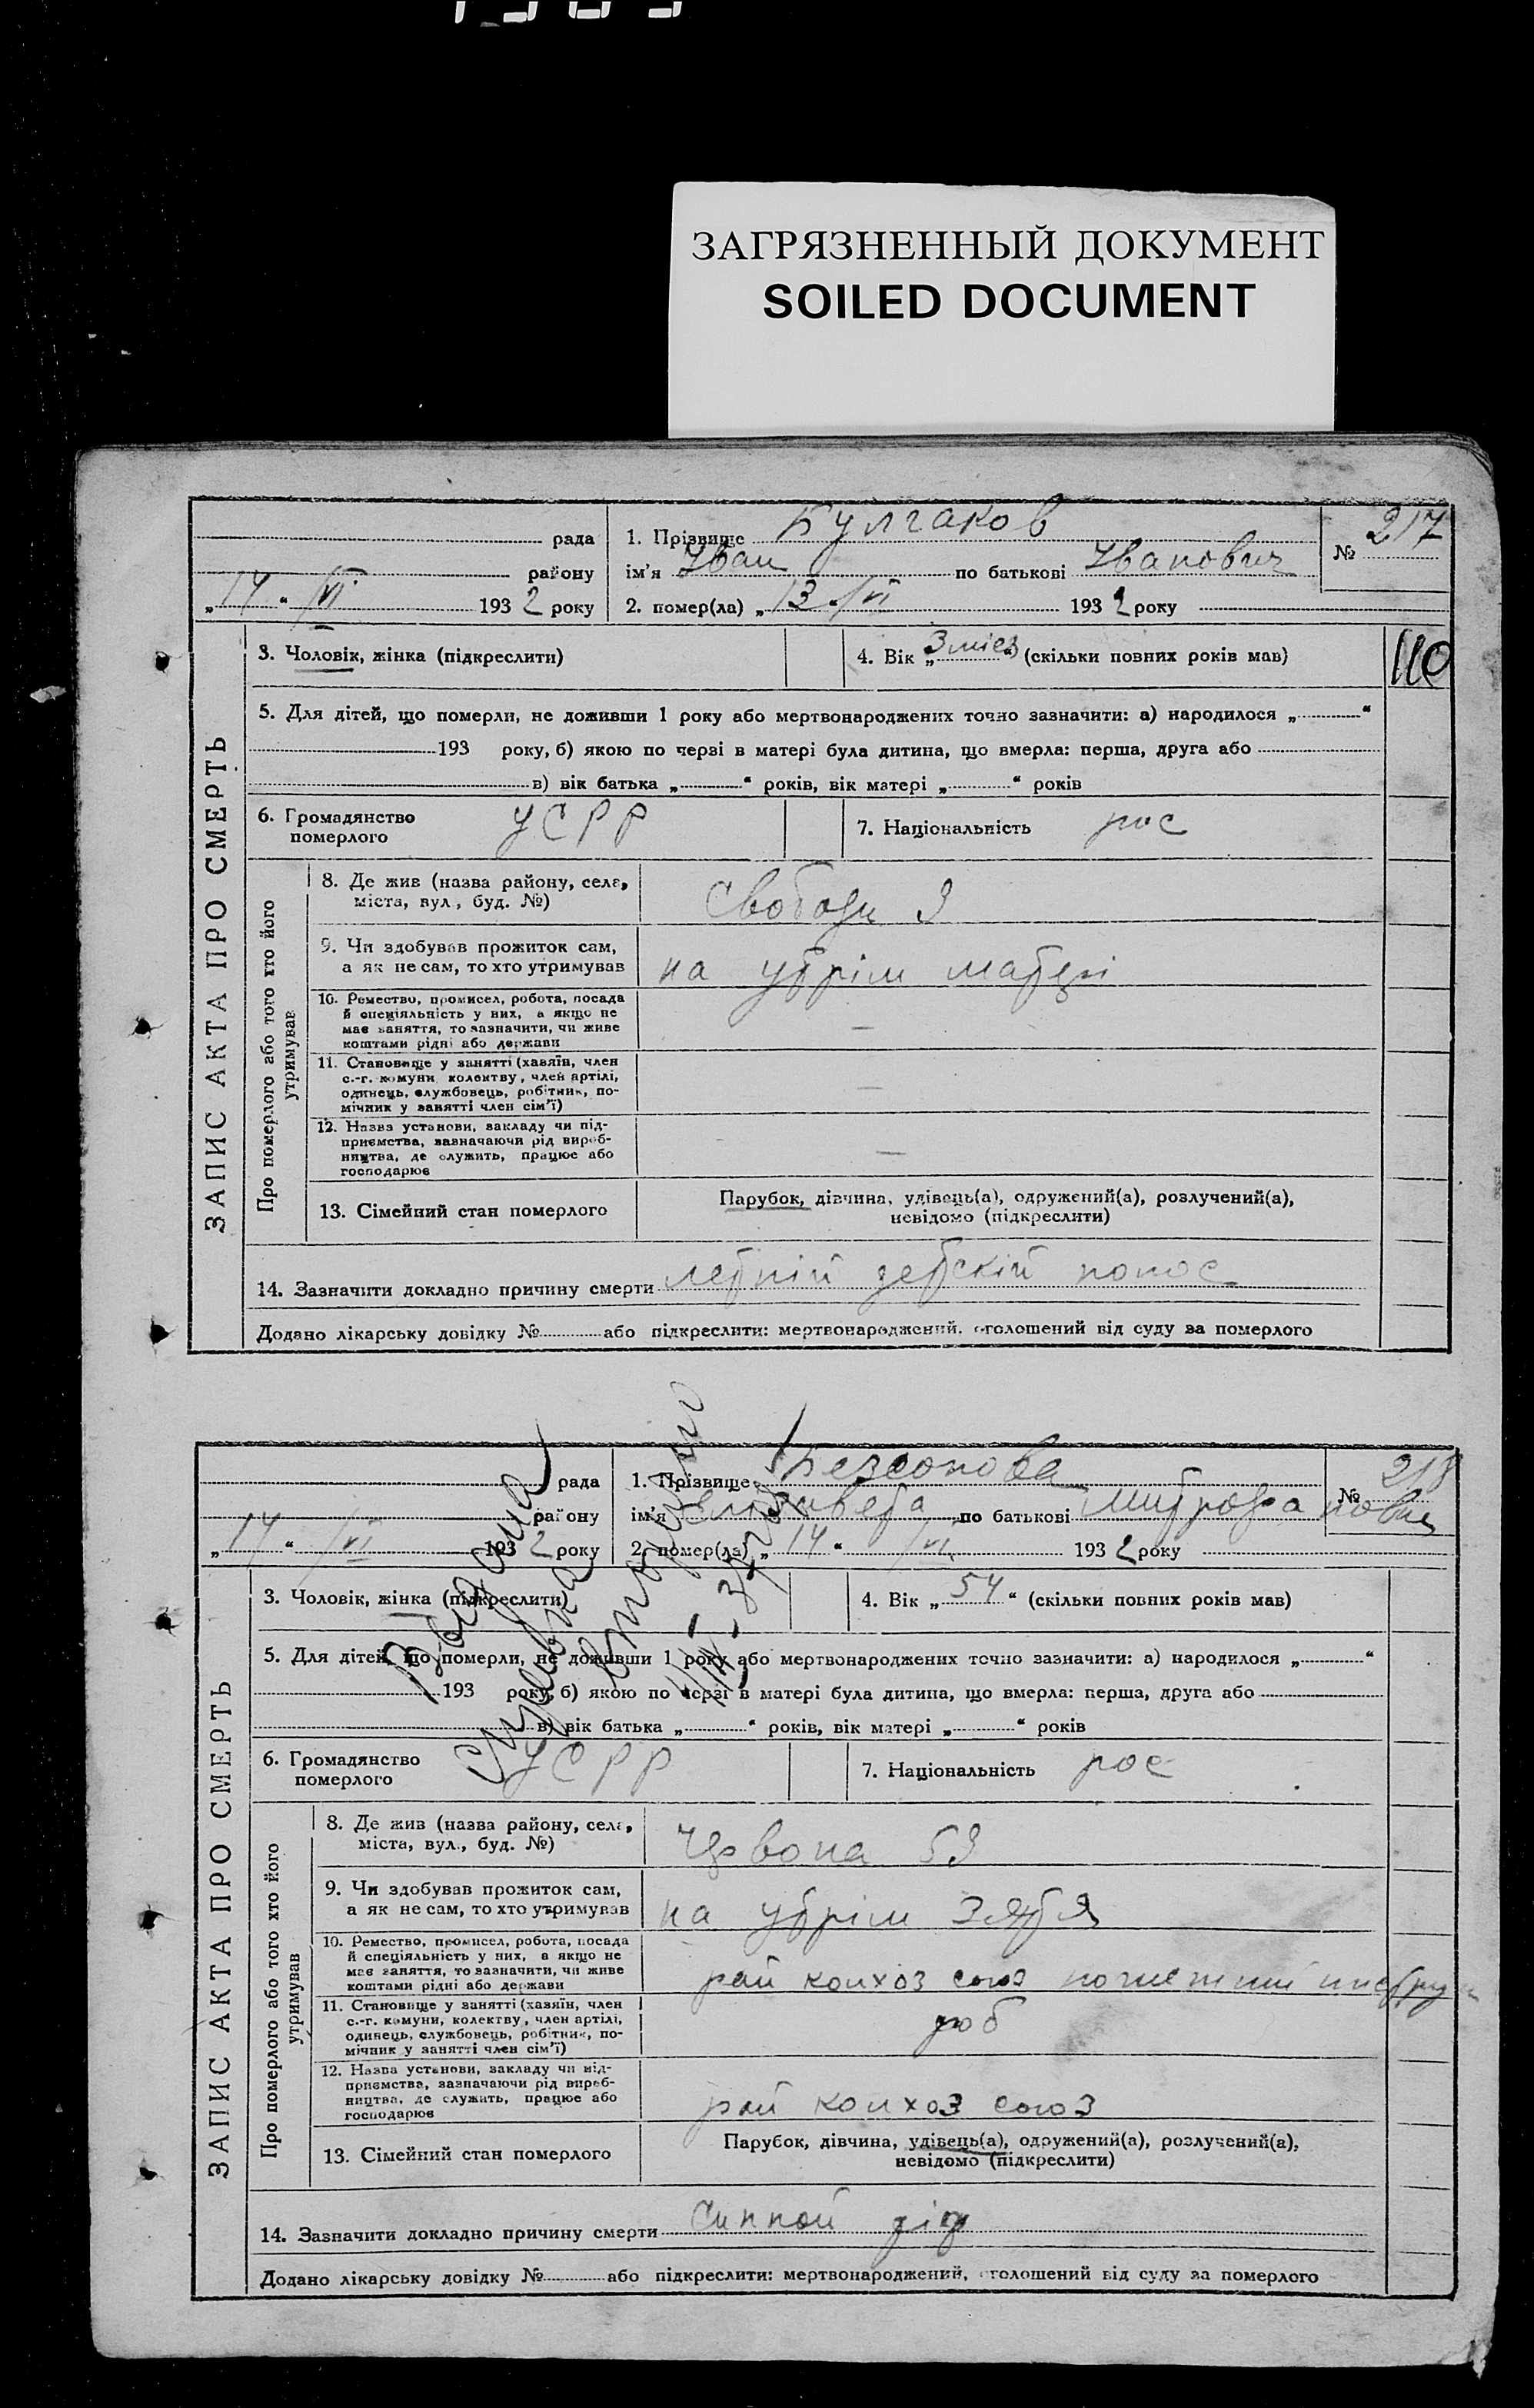 ЗАГРЯЗНЕННЫЙ ДОКУМЕНТ
SOILED DOCUMENT
ЗАПИС АКТА ПРО СМЕРТЬ
рада
району
„14“ /VI 1932 року
1. Прізвище Булгаков
ім'я Иван по батькові Иванович
2. помер(ла) „13“ /VI 1932 року
№ 217
3. Чоловік, жінка (підкреслити)
4. Вік „3 міс“ (скільки повних років мав)
110
5. Для дітей, що померли, не доживши 1 року або мертвонароджених точно зазначити: а) народилося „ “
193 року, б) якою по черзі в матері була дитина, що вмерла: перша, друга або
в) вік батька „ “ років, вік матері „ “ років
6. Громадянство померлого УСРР
7. Національність рос
Про померлого або того хто його утримував
8. Де жив (назва району, села, міста, вул., буд. №) Свободи 3
9. Чи здобував прожиток сам, а як не сам, то хто утримував на утрім матері
10. Ремество, промисел, робота, посада
й спеціяльність у них, а якщо не
має заняття, то зазначити, чи живе
коштами рідні або держави —
11. Становище у занятті (хазяїн, член
с.-г. комуни, колектву, член артілі,
одинець, службовець, робітник, по-
мічник у занятті член сім'ї) —
12. Назва установи, закладу чи під-
приємства, зазначаючи рід вироб-
ництва, де служить, працює або
господарює —
13. Сімейний стан померлого
Парубок, дівчина, удівець(а), одружений(а), розлучений(а),
невідомо (підкреслити)
14. Зазначити докладно причину смерти летній детскій понос
Додано лікарську довідку № або підкреслити: мертвонароджений, оголошений від суду за померлого
ЗАПИС АКТА ПРО СМЕРТЬ
рада
району
„14“ /VI 1932 року
1. Прізвище Безсонова
ім'я Елізавета по батькові Митрофановна
2. помер(ла) „14“ /VI 1932 року
№ 218
3. Чоловік, жінка (підкреслити)
4. Вік „54“ (скільки повних років мав)
5. Для дітей, що померли, не доживши 1 року або мертвонароджених точно зазначити: а) народилося „ “
193 року, б) якою по черзі в матері була дитина, що вмерла: перша, друга або
в) вік батька „ “ років, вік матері „ “ років
6. Громадянство померлого УСРР
7. Національність рос
Про померлого або того хто його утримував
8. Де жив (назва району, села, міста, вул., буд. №) Червона 53
9. Чи здобував прожиток сам, а як не сам, то хто утримував на утрім Зятя
10. Ремество, промисел, робота, посада
й спеціяльність у них, а якщо не
має заняття, то зазначити, чи живе
коштами рідні або держави рай колхоз союз
11. Становище у занятті (хазяїн, член
с.-г. комуни, колектву, член артілі,
одинець, службовець, робітник, по-
мічник у занятті член сім'ї) роб
12. Назва установи, закладу чи під-
приємства, зазначаючи рід вироб-
ництва, де служить, працює або
господарює рай колхоз союз
13. Сімейний стан померлого
Парубок, дівчина, удівець(а), одружений(а), розлучений(а),
невідомо (підкреслити)
14. Зазначити докладно причину смерти Сипной
Додано лікарську довідку № або підкреслити: мертвонароджений, оголошений від суду за померлого